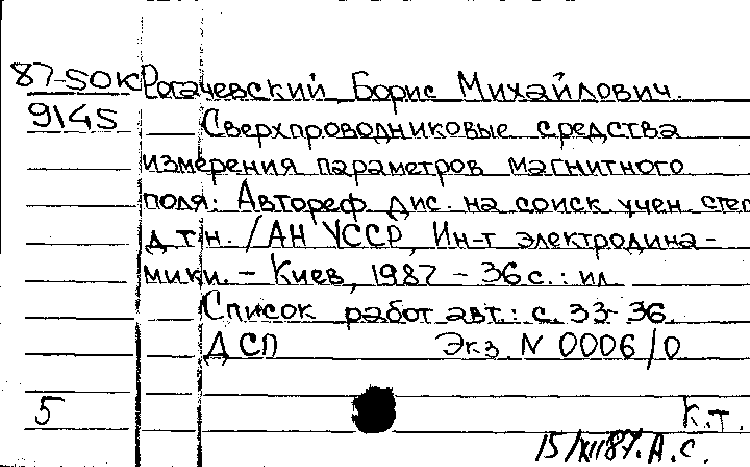 87-50К Рогачевский Борис Михайлович.
9145 Сверхпроводниковые средства
измерения параметров магнитного
поля: Автореф. дис. на соиск. учен. степ
д. т. н. / АН УССР, Ин-т электродина-
мики. - Киев, 1987 - 36 с.: ил
Список работ авт.: с. 33-36.
ДСП Экз. N 0006/0
5 К.т.
15/XII87. А.С.